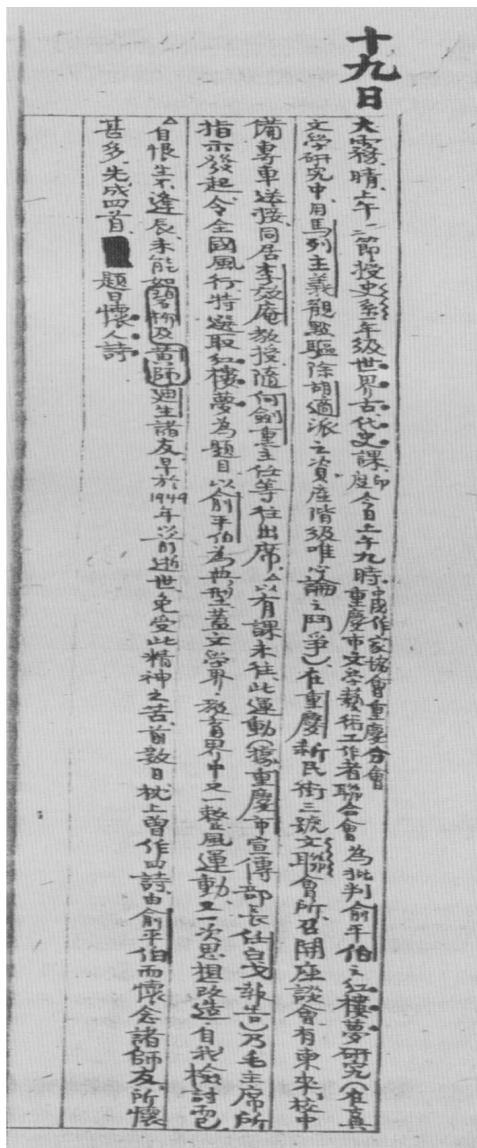 十九日
大霧，晴。上午一二節授史系一年級世界古代史課。今日上午九時，中國作家協會重慶分會
重慶市文學藝術工作者聯合會為批判俞平伯之紅樓夢研究（在真
文學研究中，用馬列主義觀點驅除胡適派之資產階級唯心論之鬥爭）在重慶新民街三號文聯會所召開座談會，有東來，校中
備專車送接，同居李效庵教授隨何劍熏主任等往出席。△以有課未往。此運動（據重慶市宣傳部長任白戈報告）乃毛主席所
指示發起，令全國風行，特選取紅樓夢為題目，以俞平伯為典型，蓋文學界、教育界中又一整風運動，又一次思想改造、自我檢討而已。
△自恨生不逢辰，未能如碧柳及黃師、迪生諸友，早於1949年以前逝世，免受此精神之苦。前數日枕上曾作詩，由俞平伯而懷念諸師友，所懷
甚多，先成四首，題曰懷人詩